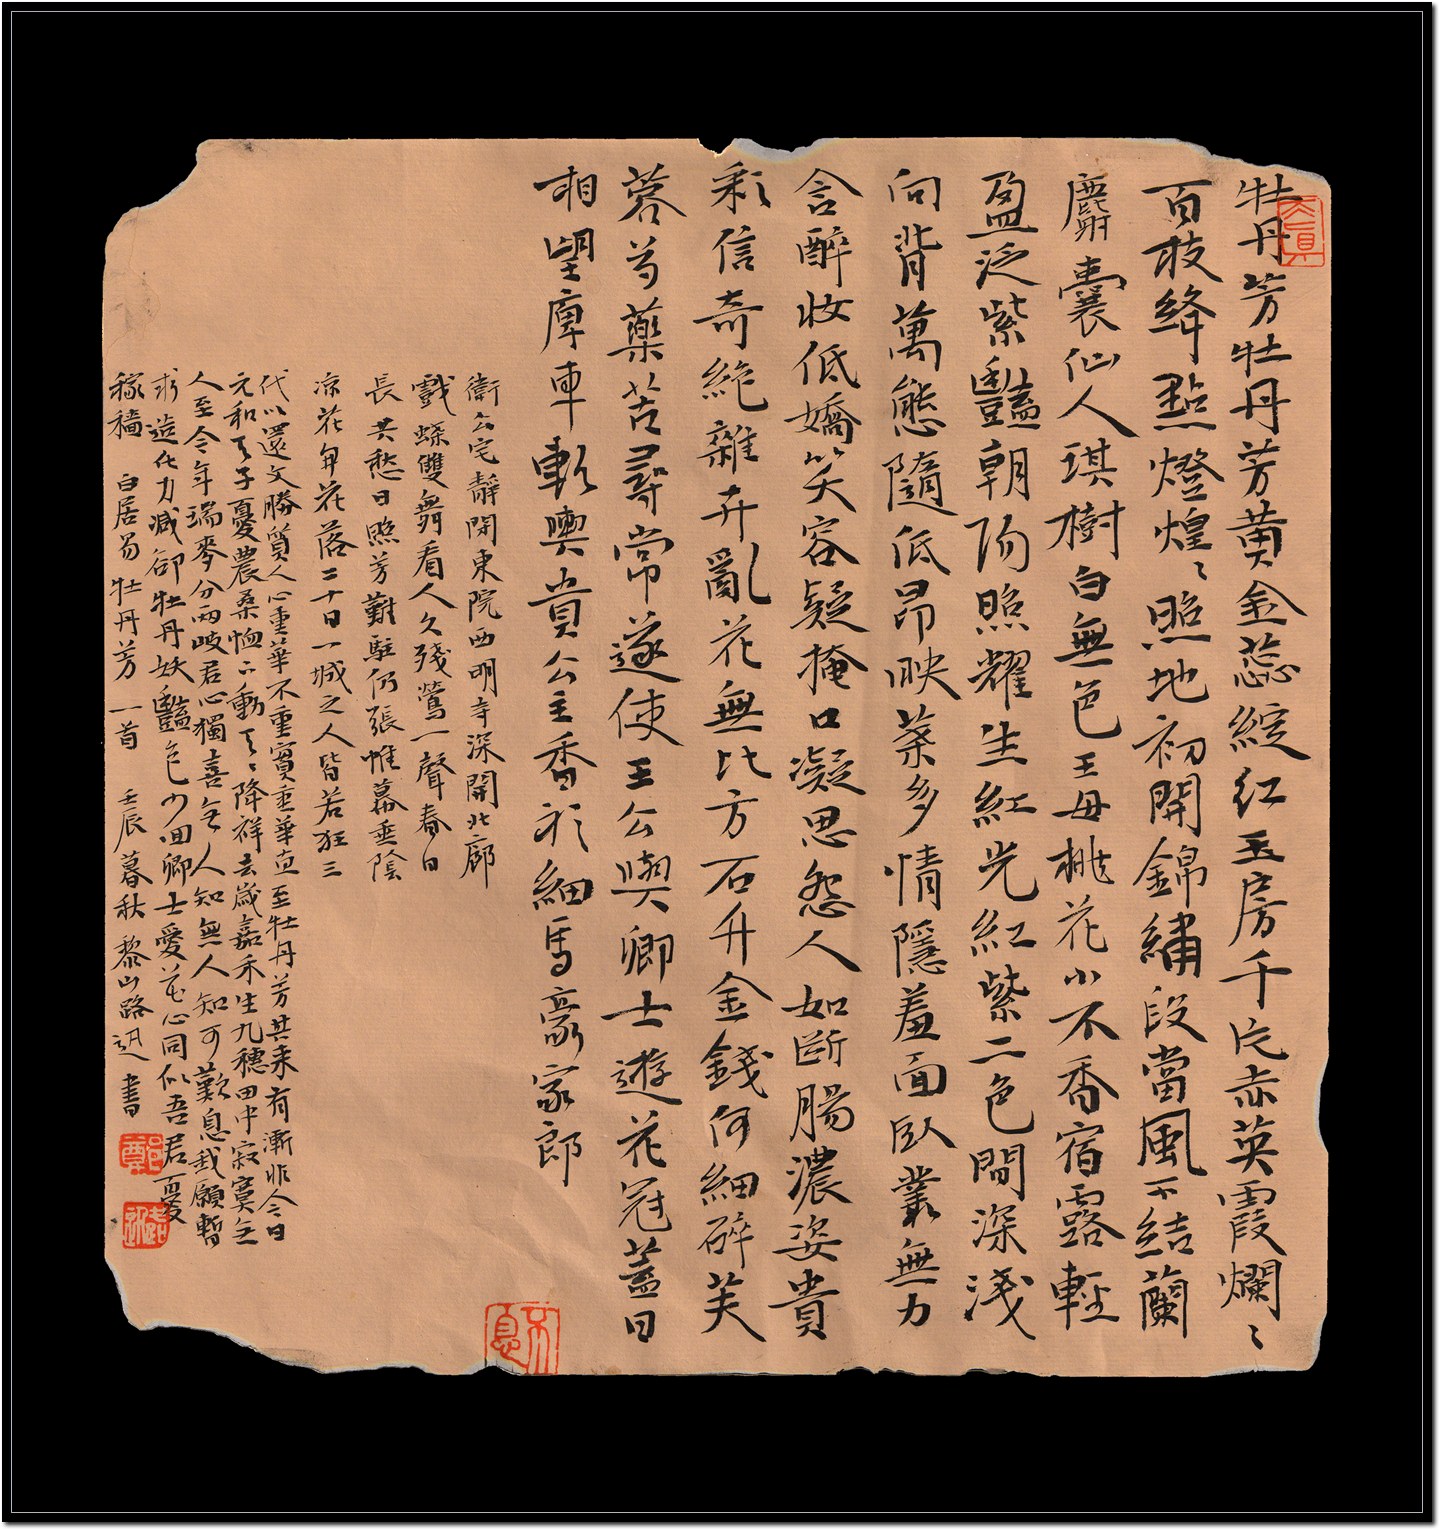 牡丹芳牡丹芳黄金蕊綻红玉房千片赤英霞爛〻
百枝绛點燈煌〻照地初開錦繡段當風不結蘭
麝囊仙人琪樹白無色王母桃花小不香宿露輕
盈泛紫豔朝陽照耀生紅光紅紫二色間深淺
向背萬態隨低昂映葉多情隱羞面臥叢無力
含醉妝低嬌笑容疑掩口凝思怨人如断腸濃姿貴
彩信奇絶雜卉亂花無比方石升金錢何細碎芙
蓉芍藥苦尋常遂使王公與卿士遊花冠蓋日
相望庳車軟輿貴公主香衫細馬豪家郎
衛公宅靜閉東院西明寺深開北廊
戲蝶雙舞看人久殘鶯一聲春日
長共愁日照芳難駐仍張帷幕垂陰
凉花開花落二十日一城之人皆若狂三
代以還文勝質人心重華不重實重華直至牡丹芳其来有漸非今日
元和天子憂農桑恤下動天〻降祥去歲嘉禾生九穗田中寂寞无
人至今年瑞麥分兩岐君心獨喜无人知無人知可歎息我願暫
求造化力減卻牡丹妖豔色少回卿士愛花心同似吾君憂
稼穡 白居易牡丹芳一首 壬辰暮秋黎山路迅書